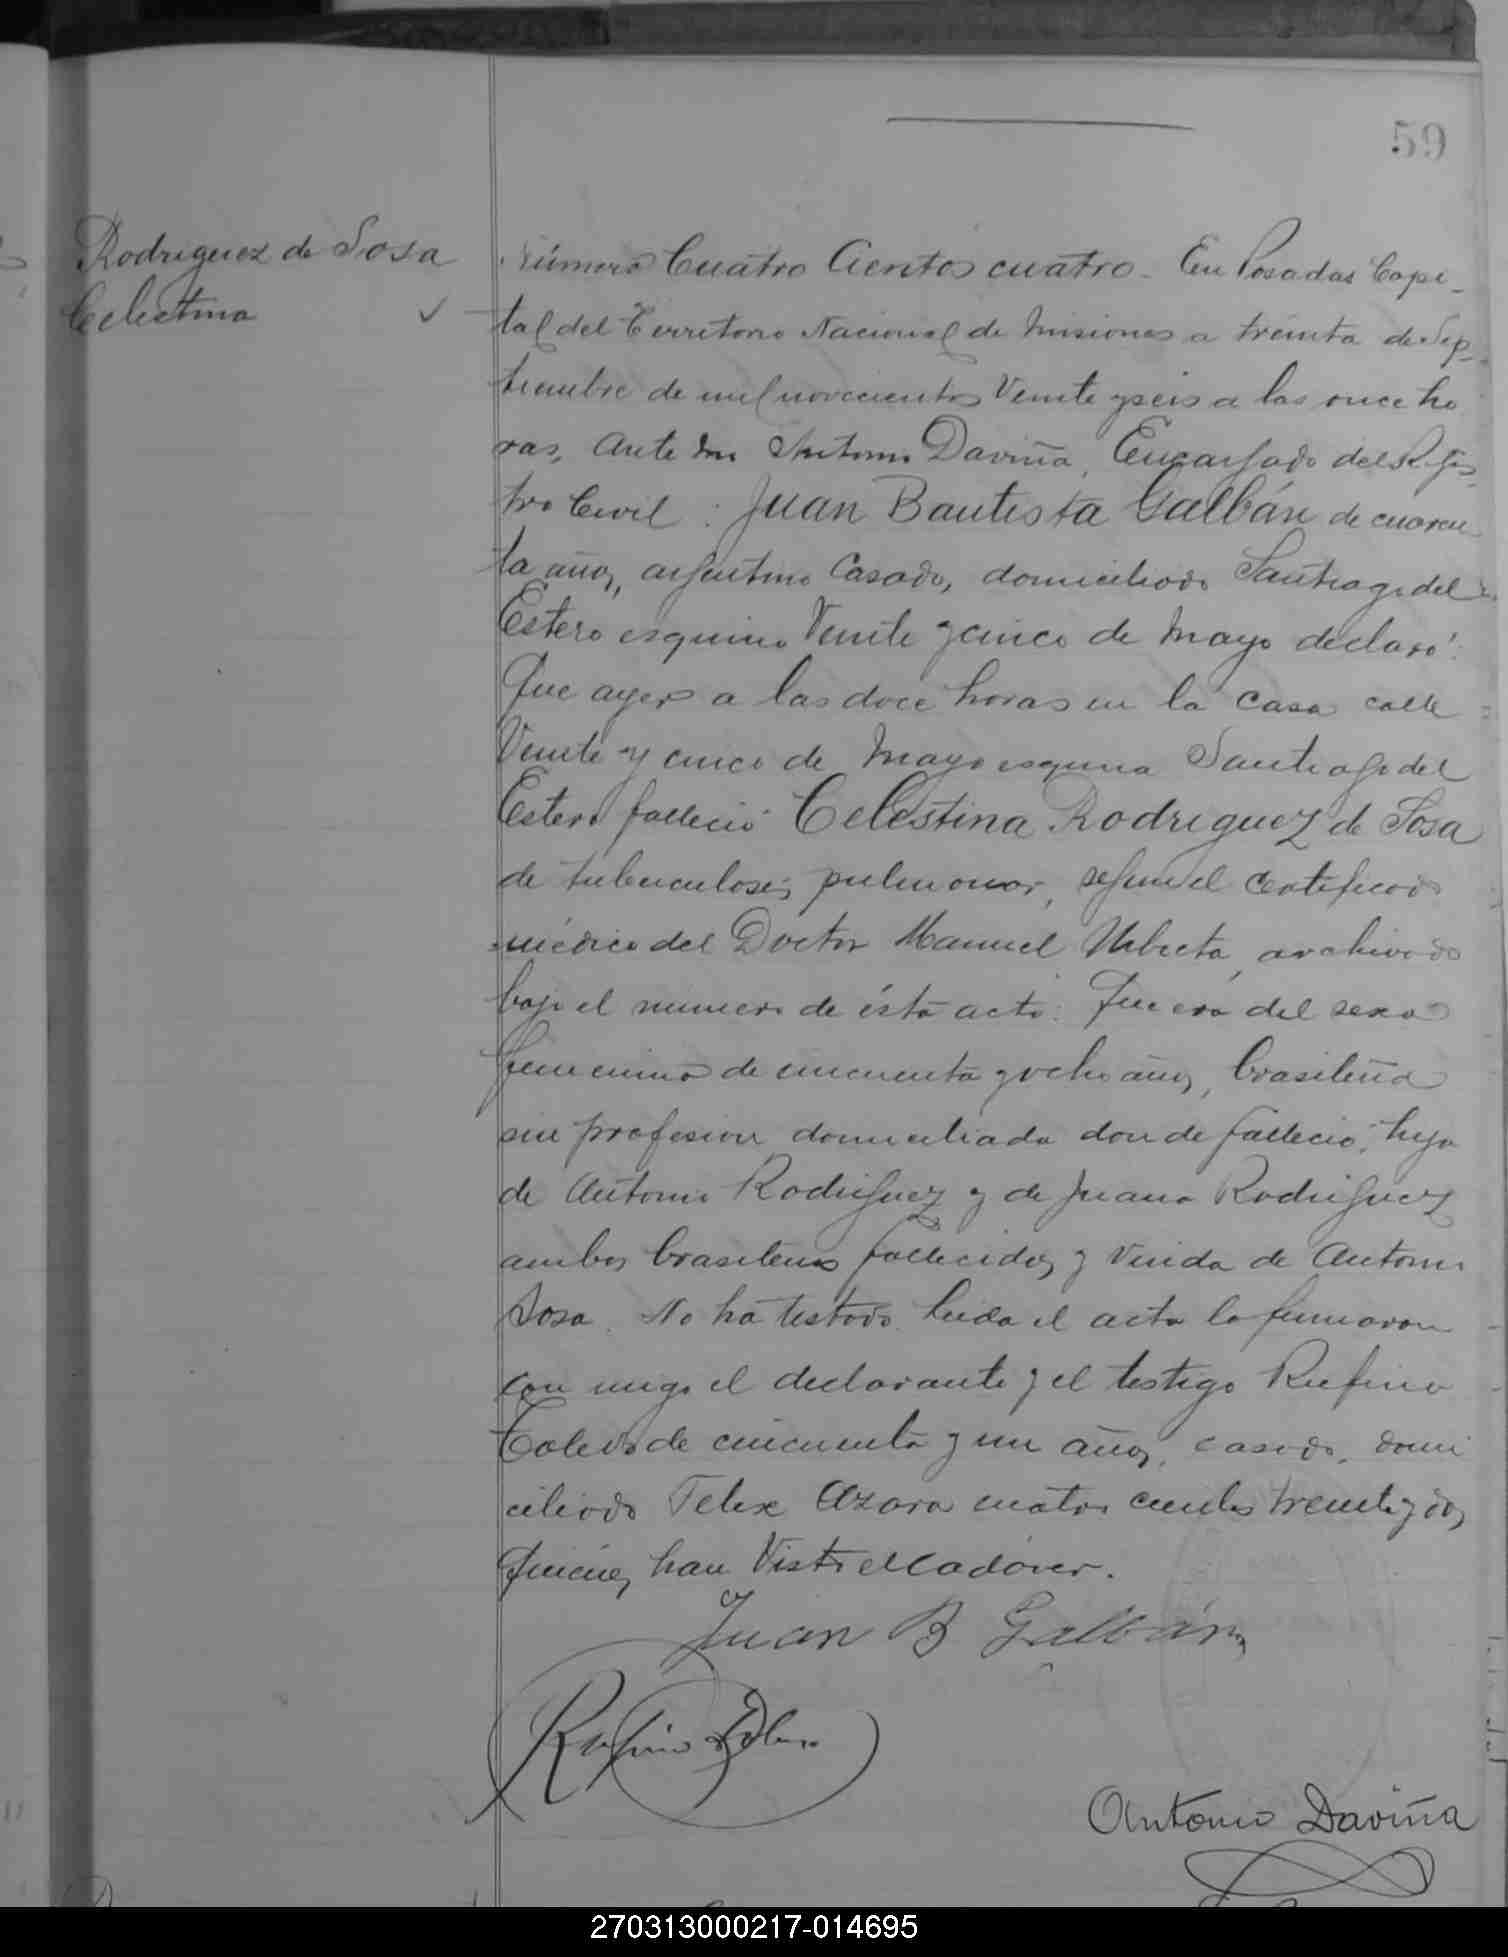 59
Rodriguez de Sosa
Celestina
Número Cuatro Cientos cuatro - En Posadas Capi-
tal del Territorio Nacional de Misiones a treinta de Sep-
tiembre de mil novecientos Veinte y seis a las once ho
ras, ante don Antonio Daviña, Encargado del Regis-
tro Civil : Juan Bautista Galbán de cuaren
ta años, argentino Casado, domiciliado Santiago del
Estero esquina Veinte y cinco de Mayo declaró:
Que ayer a las doce horas en la casa calle
Veinte y cinco de Mayo esquina Santiago del
Estero falleció Celestina Rodriguez de Sosa
de tuberculosis pulmonar, según el certificado
médico del Doctor Manuel archivado
bajo el número de ésta acta: Que era del sexo
femenino de cincuenta y ocho años, brasileña
sin profesion domiciliada donde falleció, hija
de Antonio Rodriguez y de Juana Rodriguez
ambos brasileños fallecidos y Viuda de Antonio
Sosa. No ha testado. Leida el acta la firmaron
con migo el declarante y el testigo Rufino
Toledo de cincuenta y un años, casado, domi
ciliado Felix Azara cuatro cientos treinta y dos,
Quienes han Visto el cadáver.
Juan B Galbán
Rufino Toledo
Antonio Daviña
270313000217-014695